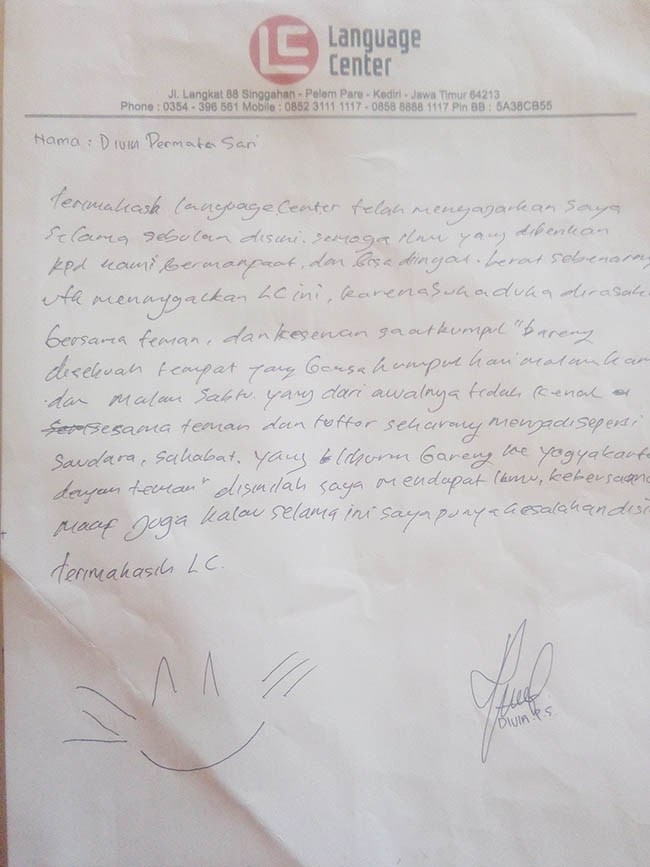 LC Language
Center
Jl. Langkat 88 Singgahan - Pelem Pare - Kediri - Jawa Timur 64213
Phone : 0354 - 396 561 Mobile : 0852 3111 1117 - 0858 8888 1117 Pin BB : 5A38CB55
Nama : Divin Permata Sari
terimakasih Language Center telah mengajarkan saya
selama sebulan disini. semoga ilmu yang diberikan
kpd kami, bermanpaat, dan bisa diingat. berat sebenarny
utk meninggalkan LC ini, karena suka duka dirasak
bersama teman, dan saat kumpul" bareng
disebuah tempat yang biasa kumpul hari malam kam
dan malam sabtu. yang dari awalnya tidak kenal
sesama teman dan tuttor sekarang menjadi seperti
saudara, sahabat. yang liburan bareng ke yogyakarta
dengan teman" disinilah saya mendapat ilmu, kebersama
maaf juga kalau selama ini saya punya kesalahan disi
terimakasih LC.
DIVIN.P.S.